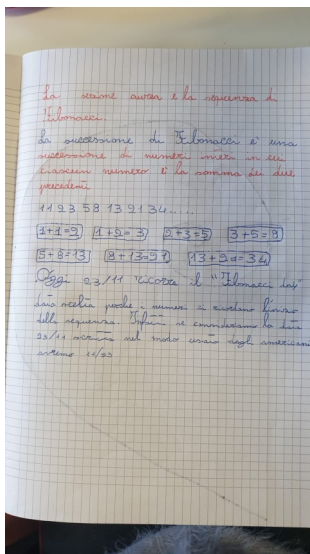 La sezione aurea e la sequenza di
Fibonacci.
La successione di Fibonacci è una
successione di numeri interi in cui
ciascun numero è la somma dei due
precedenti
1 1 2 3 5 8 13 21 34.....
1+1=2 1+2=3 2+3=5 3+5=8
5+8=13 8+13=21 13+21=34
Oggi 23/11 ricorre il "Fibonacci day"
data scelta poiché i numeri ci ricordano l'inizio
della sequenza. Infatti se consideriamo la data
23/11 scritta nel modo usato dagli americani
avremo 11/23